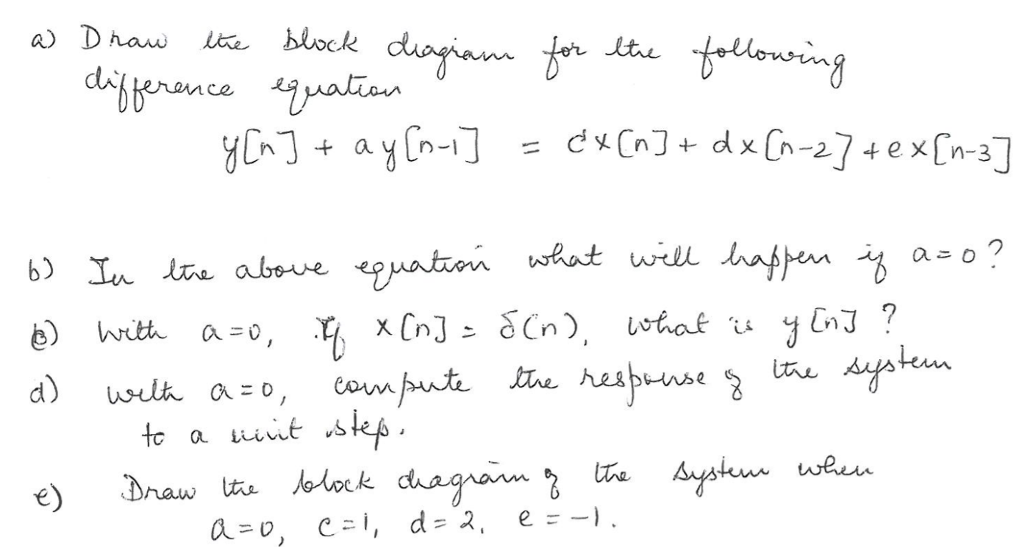 a) Draw the block diagram for the following
difference equation
y[n] + ay[n-1] = cx[n] + dx[n-2] + ex[n-3]
b) In the above equation what will happen if a=0?
c) with a=0, If x[n] = δ(n), what is y[n]?
d) with a=0, compute the response of the system
to a unit step.
e) Draw the block diagram of the system when
a=0, c=1, d=2, e=-1.